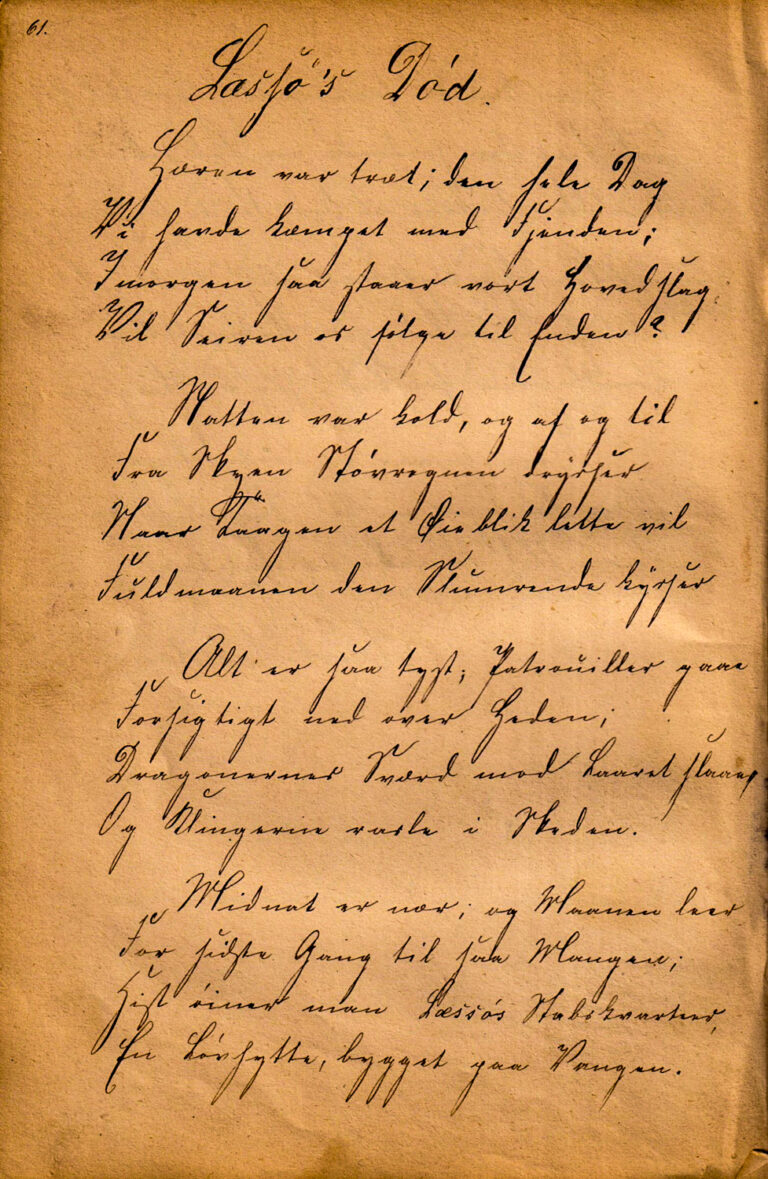 61.
Læssø's Død.
Hæren var træt; den hele Dag
Vi havde kæmpet med Fjenden;
Imorgen saa staaer vort Hovedslag.
Vil Seiren os følge til Enden?
Natten var kold, og af og til
Fra Skyen Støvregnen drysser
Naar Taagen et Øieblik lette vil
Fuldmaanen den Slumrende kysser
Alt er saa tyst; Patrouiller gaae
Forsigtigt ned over Heden;
Dragonernes Sværd mod Laaret slaae,
Og Klingerne rasle i Skeden.
Midnat er nær; og Maanen leer
For sidste Gang til saa Mangen;
Hist øiner man Læssøs Stabskvarteer,
En Løvhytte, bygget paa Vangen.